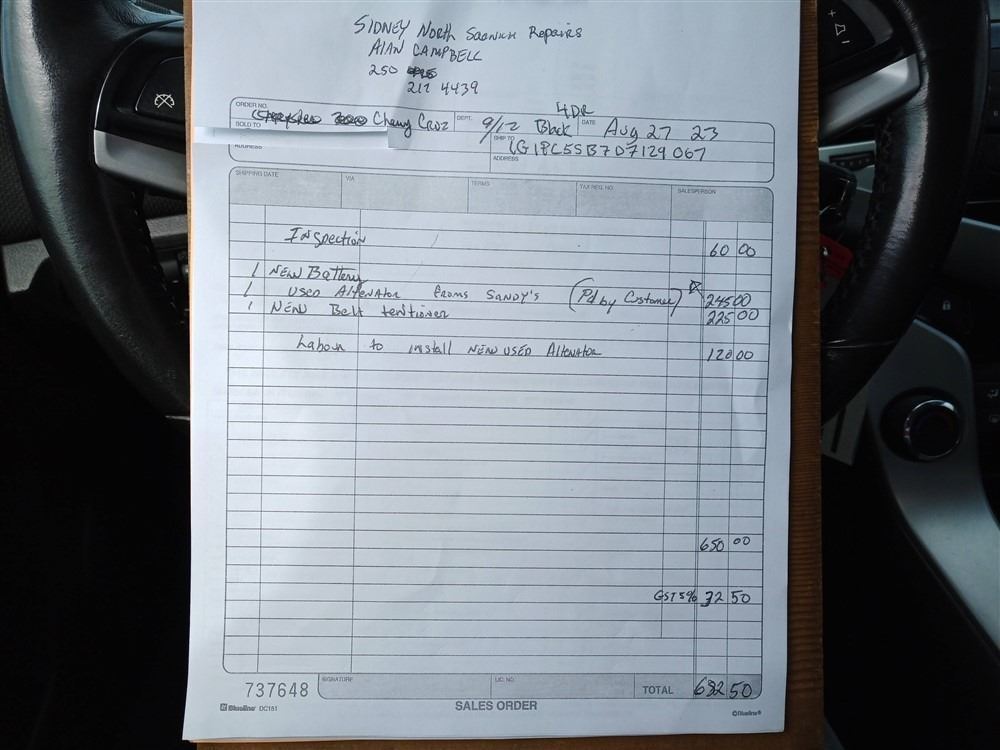 SIDNEY North Saanich Repairs
Alan CAMPBELL
250
217 4439
4DR
ORDER NO.
Chevy CRUZ
DEPT.
9/12 Black
DATE
Aug 27 23
SOLD TO
SHIP TO
1G1PC5SB7D7129067
ADDRESS
ADDRESS
SHIPPING DATE VIA TERMS TAX REG. NO. SALESPERSON
Inspection 60 00
1 NEW Battery
1 USED Altenator froms SANDY'S (Pd by Customer) 245 00
1 NEW Belt tentioner 225 00
Labour to install NEW USED Altenator 120 00
650 00
GST 5% 32 50
737648 SIGNATURE LIC. NO. TOTAL 682 50
Blueline DC151 SALES ORDER ©Blueline®